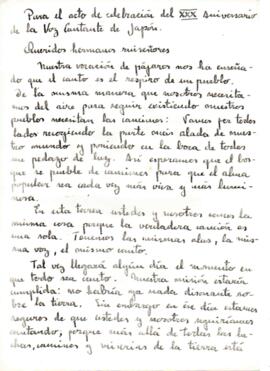 Para el acto de celebración del XXX Aniversario
de la Voz Cantante de Japón.
Queridos hermanos ruiseñores
Nuestra vocación de pájaros nos ha enseña-
do que el canto es el respiro de un pueblo.
De la misma manera que nosotros necesita-
mos del aire para seguir existiendo nuestros
pueblos necesitan las canciones. Vamos por todos
lados recogiendo la parte más alada de nues-
tro mundo y poniendo en la boca de todos
un pedazo de luz. Así esperamos que el bos-
que se pueble de canciones para que el alma
popular sea cada vez más viva y más lumi-
nosa.
En esta tierra ustedes y nosotros somos la
misma cosa porque la verdadera canción es
una sola. Tenemos las mismas alas, la mis-
ma voz, el mismo canto.
Tal vez llegará algún día el momento en
que todo sea canto. Nuestra misión estaría
cumplida: no habría ya nada disonante so-
bre la tierra. Sin embargo en ese día estamos
seguros de que ustedes y nosotros seguiríamos
cantando, porque más allá de todas las lu-
chas, caminos y miserias de la tierra está